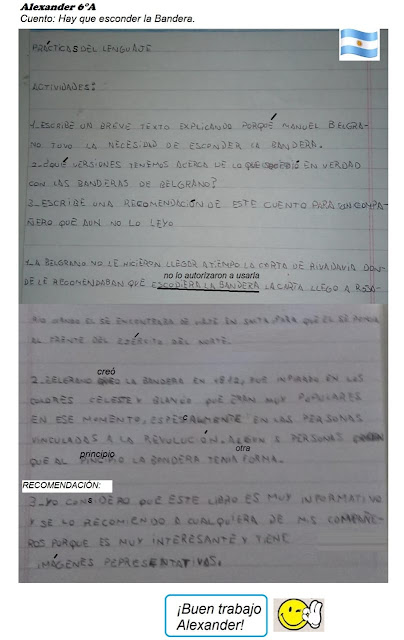 Alexander 6°A
Cuento: Hay que esconder la Bandera.
PRÁCTICAS DEL LENGUAJE
ACTIVIDADES:
1-ESCRIBÉ UN BREVE TEXTO EXPLICANDO PORQUÉ MANUEL BELGRA-
NO TUVO LA NECESIDAD DE ESCONDER LA BANDERA.
2-¿QUÉ VERSIONES TENEMOS ACERCA DE LO QUE SUCEDIÓ EN VERDAD
CON LAS BANDERAS DE BELGRANO?
3-ESCRIBE UNA RECOMENDACIÓN DE ESTE CUENTO PARA UN COMPA-
ÑERO QUE AUN NO LO LEYO.
1-A BELGRANO NO LE HICIERON LLEGAR A TIEMPO LA CARTA DE RIVADAVIA DON-
no lo autorizaron a usarla
DE LE RECOMENDABAN QUE ESCODIERA LA BANDERA LA CARTA LLEGO A ROSA-
RIO CUANDO EL SE ENCONTRABA DE VIAJE EN SALTA, PARA QUE EL SE PONGA
AL FRENTE DEL EJÉRCITO DEL NORTE.
creó
2-BELGRANO LA BANDERA EN 1812, FUE INPIRADO EN LOS
COLORES CELESTE Y BLANCO QUE ERAN MUY POPULARES
EN ESE MOMENTO, ESPECIALMENTE EN LAS PERSONAS
VINCULADAS A LA REVOLUCIÓN. PERSONAS
principio otra
QUE AL LA BANDERA TENIA FORMA.
RECOMENDACIÓN:
3-YO CONSIDERO QUE ESTE LIBRO ES MUY INFORMATIVO
Y SE LO RECOMIENDO A CUALQUIERA DE MIS COMPAÑE-
ROS PORQUE ES MUY INTERESANTE Y TIENE
IMÁGENES REPRESENTATIVAS.
¡Buen trabajo
Alexander!